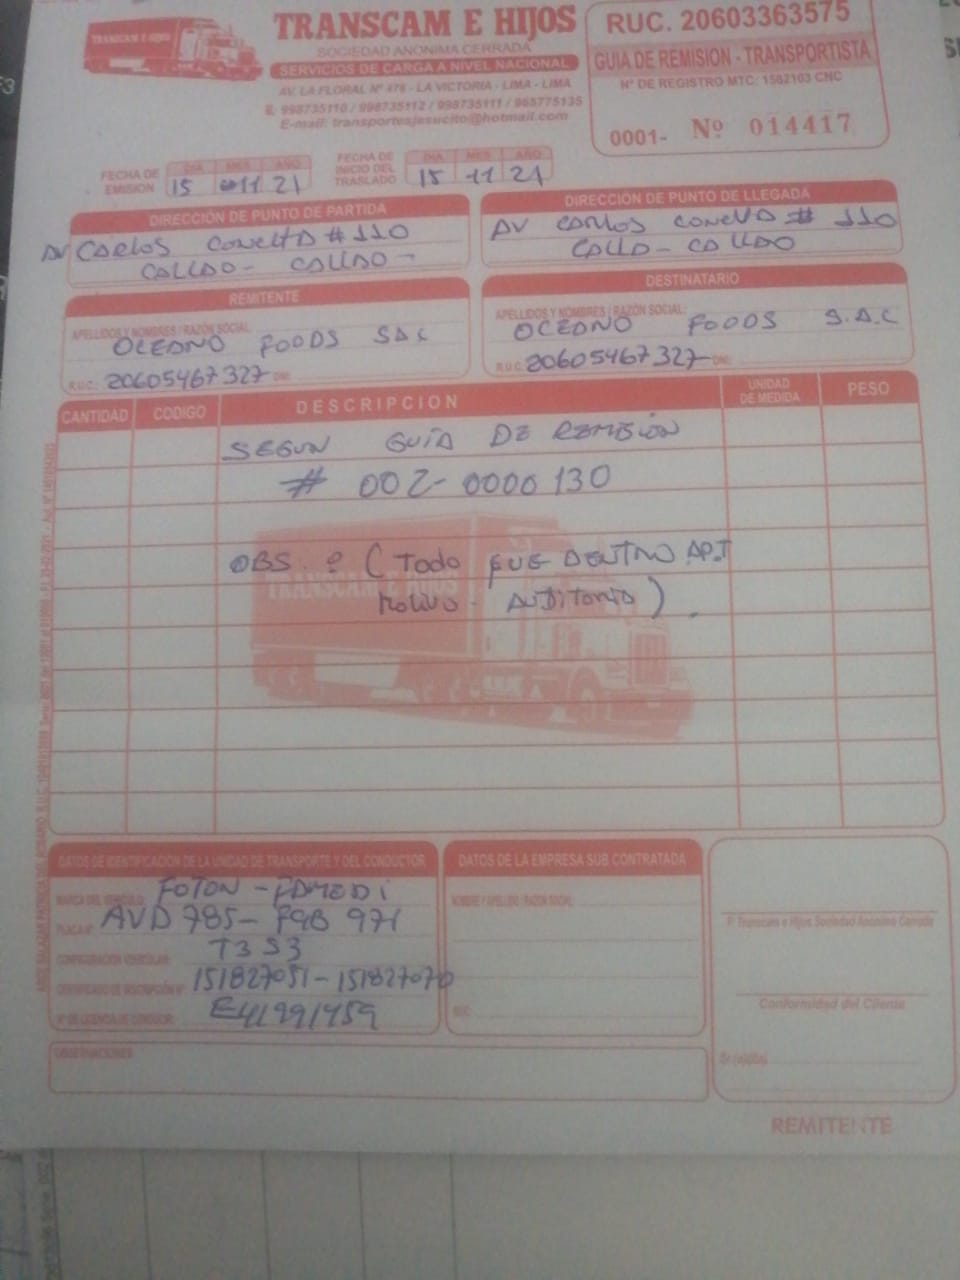 TRANSCAM E HIJOS
TRANSCAM E HIJOS
SOCIEDAD ANONIMA CERRADA
SERVICIOS DE CARGA A NIVEL NACIONAL
AV. LA FLORAL Nº 476 - LA VICTORIA - LIMA - LIMA
998735110 / 998735112 / 998735111 / 965775135
E-mail: transportesjesucito@hotmail.com
RUC. 20603363575
GUIA DE REMISION - TRANSPORTISTA
Nº DE REGISTRO MTC: 1582103 CNC
0001- Nº 014417
FECHA DE EMISION DIA MES AÑO
15 11 21
FECHA DE INICIO DEL TRASLADO DIA MES AÑO
15 11 21
DIRECCIÓN DE PUNTO DE PARTIDA
AV CARLOS CONCHA # 110
CALLAO - CALLAO -
DIRECCIÓN DE PUNTO DE LLEGADA
AV CARLOS CONCHA # 110
CALLO - CALLAO
REMITENTE
APELLIDOS Y NOMBRES / RAZÓN SOCIAL
OCEANO FOODS SAC
R.U.C. 20605467327 DNI:
DESTINATARIO
APELLIDOS Y NOMBRES / RAZÓN SOCIAL:
OCEANO FOODS S.A.C
R.U.C. 20605467327 DNI:
CANTIDAD CODIGO DESCRIPCION UNIDAD DE MEDIDA PESO
SEGUN GUÍA DE REMISIÓN
# 002-0000130
OBS. : (Todo FUE DENTRO APT
Motivo - AUDITORIA)
TRANSCAM E HIJOS
DATOS DE IDENTIFICACION DE LA UNIDAD DE TRANSPORTE Y DEL CONDUCTOR
MARCA DEL VEHICULO: FOTON -
PLACA Nº AVD 785- F9B 971
CONFIGURACION VEHICULAR: T3 S3
CERTIFICADO DE INSCRIPCIÓN Nº 151827051-151827070
Nº DE LICENCIA DE CONDUCIR: E41991459
DATOS DE LA EMPRESA SUB CONTRATADA
NOMBRE Y APELLIDO / RAZON SOCIAL:
RUC:
P. Transcam e Hijos Sociedad Anonima Cerrada
Conformidad del Cliente
Sr.(a)(ita)
OBSERVACIONES:
REMITENTE